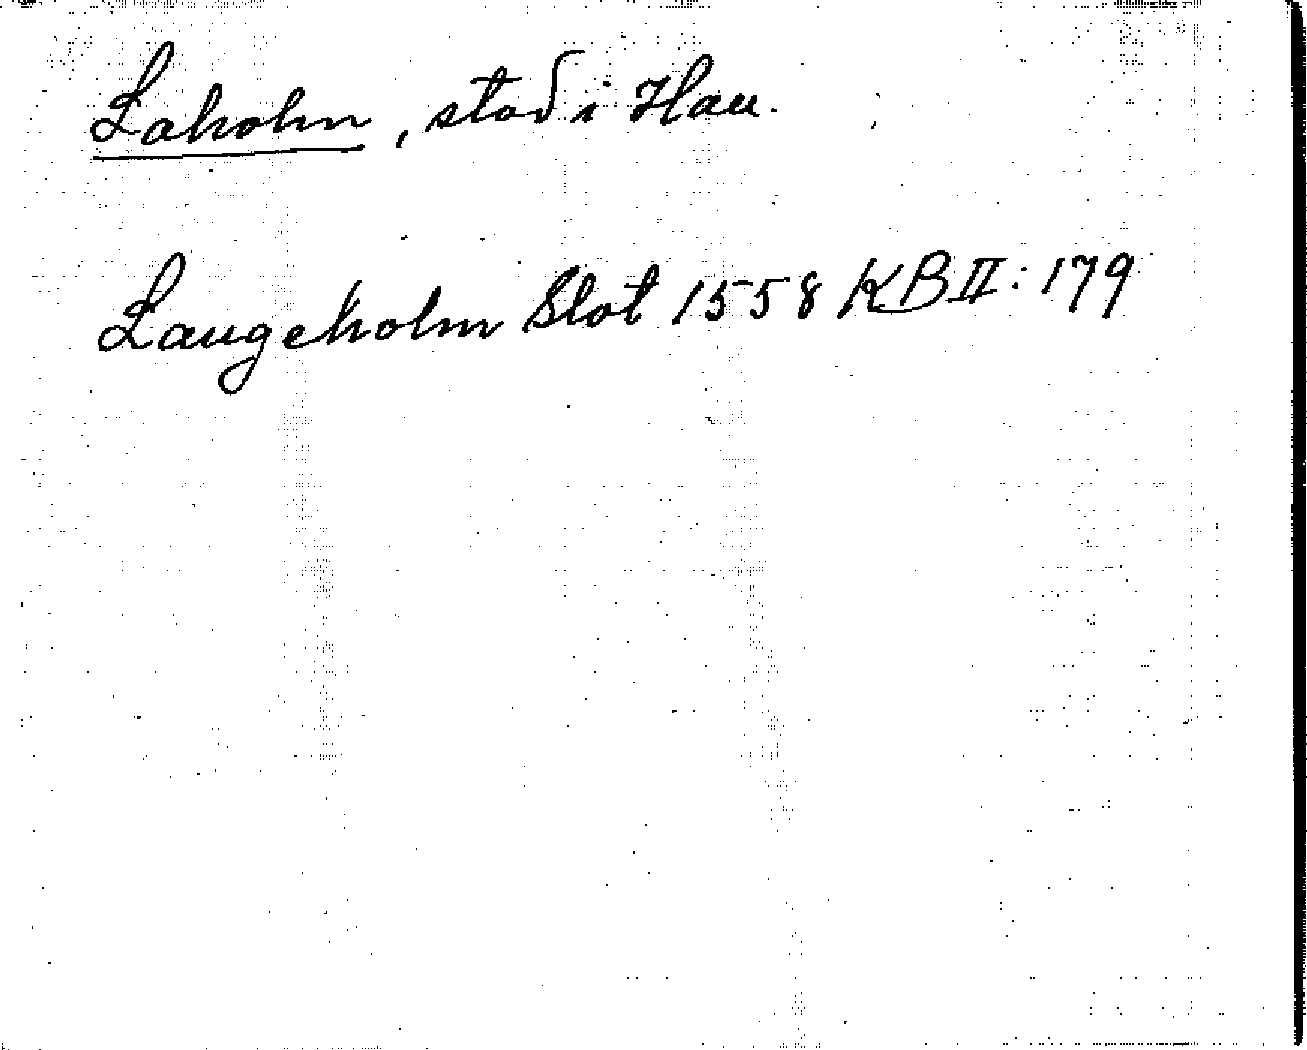 Laholm, stad i Hall.
Laugeholm Slot 1558 KB II: 179